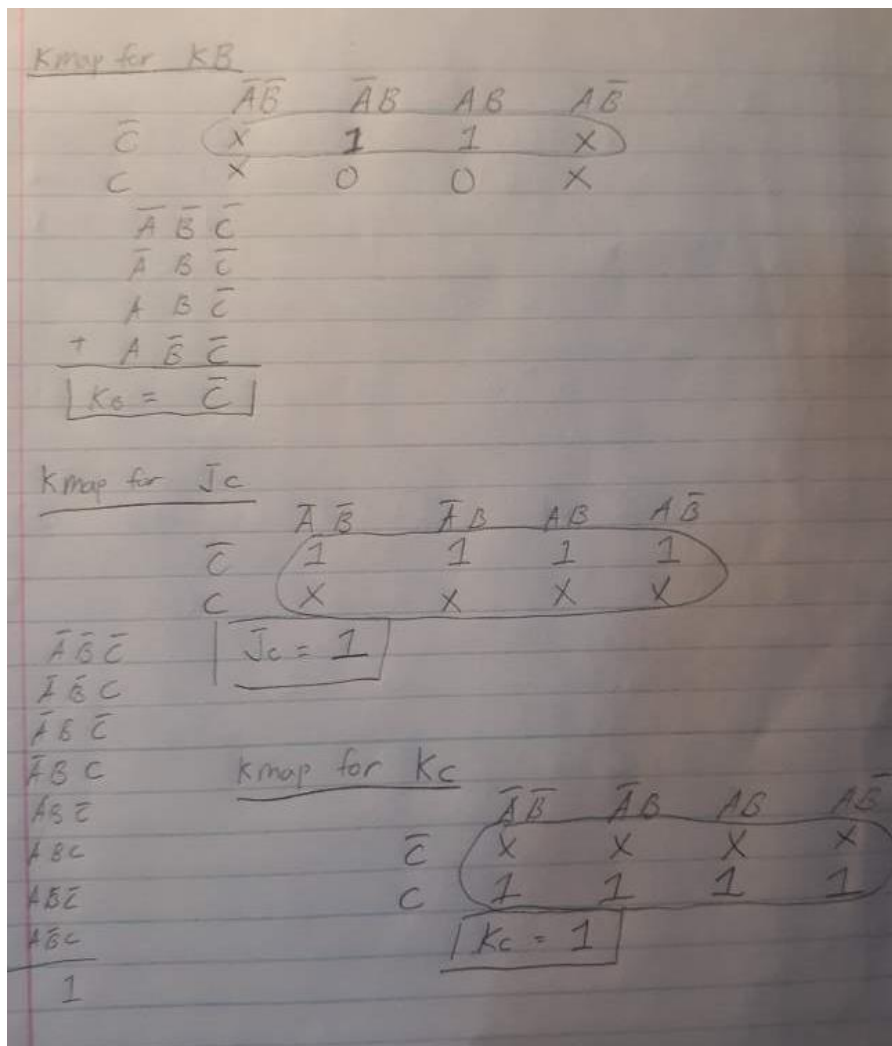 Kmap for KB
A̅B̅ A̅B AB AB̅
C̅ X 1 1 X
C X 0 0 X
A̅ B̅ C̅
A̅ B C̅
A B C̅
+ A B̅ C̅
KB = C̅
Kmap for Jc
A̅ B̅ A̅B AB AB̅
C̅ 1 1 1 1
C X X X X
Jc = 1
A̅B̅C̅
A̅B̅C
A̅BC̅
A̅BC
ABC̅
ABC
AB̅C̅
AB̅C
1
Kmap for Kc
A̅B̅ A̅B AB AB̅
C̅ X X X X
C 1 1 1 1
Kc = 1